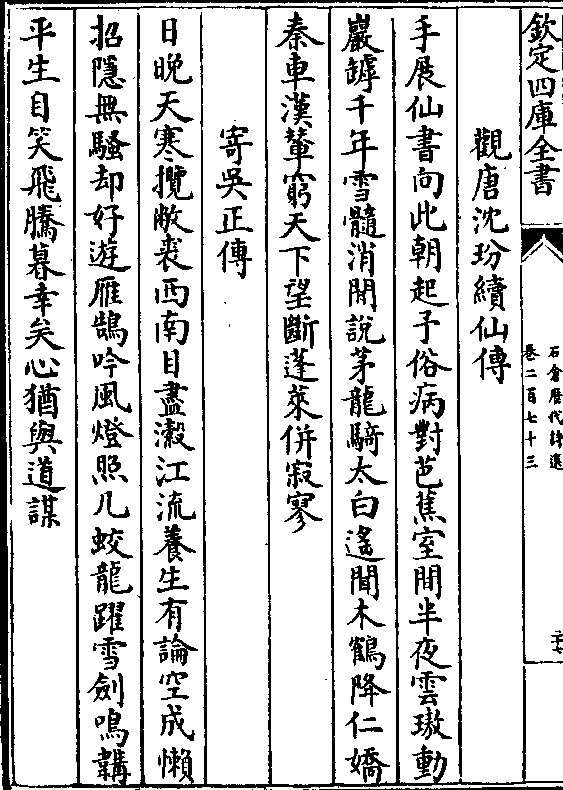 欽定四庫全書
石倉歷代詩選
卷二百七十三
觀唐沈玢續仙傳
手展仙書向此朝起予俗病對芭蕉室間半夜雲璈動
巖罅千年雪髓消間說茅龍騎太白遙聞木鶴降仁嬌
秦車漢輦窮天下望斷蓬萊併寂寥
寄吳正傳
日晚天寒攬敝裘西南目盡瀔江流養生有論空成懶
招隱無騷却好遊雁鵠吟風燈照几蛟龍躍雪劍鳴韝
平生自笑飛騰暮幸矣心猶與道謀